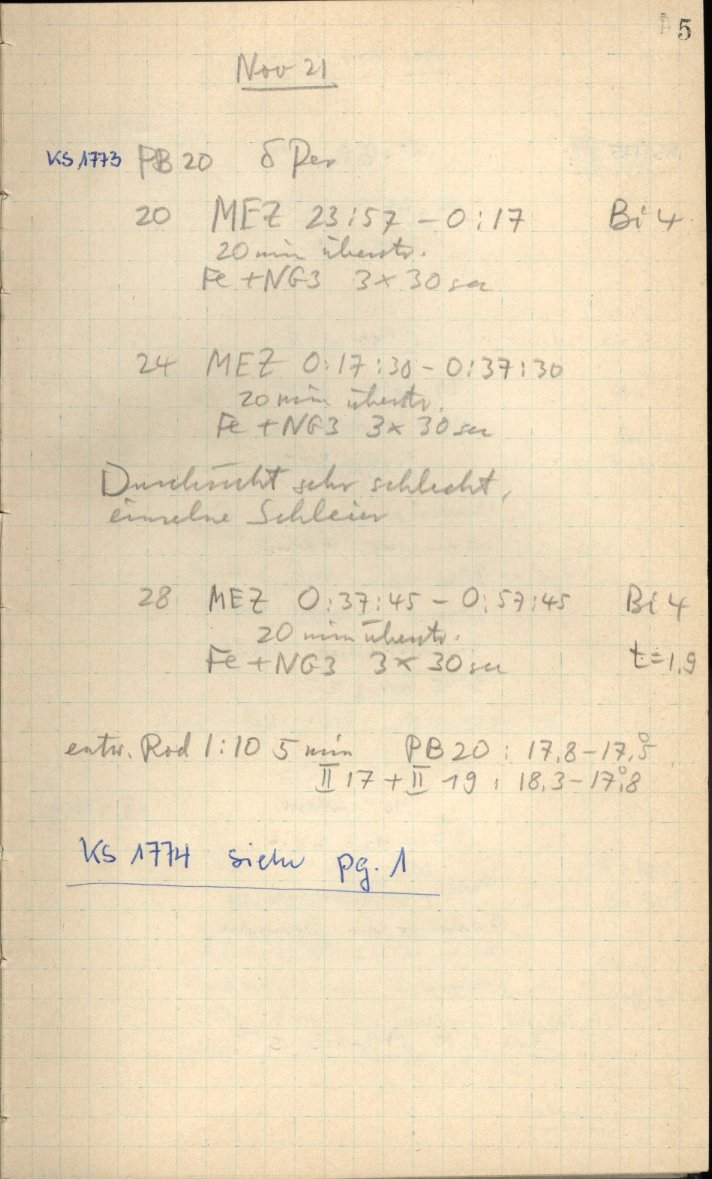 5
Nov 21
KS 1773 PB 20 δ Per
20 MEZ 23:57 – 0:17 Bi 4
20 min überstr.
Fe + NG3 3 × 30 sec
24 MEZ 0:17:30 – 0:37:30
20 min überstr.
Fe + NG3 3 × 30 sec
Durchsicht sehr schlecht,
einzelne Schleier
28 MEZ 0:37:45 – 0:57:45 Bi 4
20 min überstr.
Fe + NG3 3 × 30 sec t = 1,9
entw. Rod 1:10 5 min PB 20 : 17,8 – 17,°5
II 17 + II 19 : 18,3 – 17,°8
KS 1774 siehe pg. 1